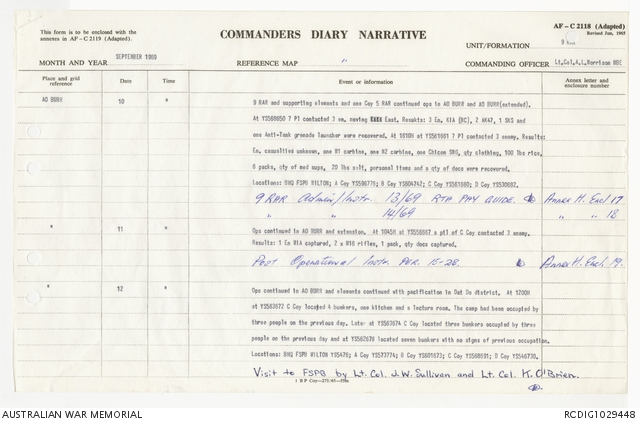 This form is to be enclosed with the
annexes in AF – C 2119 (Adapted).
COMMANDERS DIARY NARRATIVE
AF – C 2118 (Adapted)
Revised Jun, 1965
UNIT/FORMATION 9
MONTH AND YEAR SEPTEMBER 1969
REFERENCE MAP "
COMMANDING OFFICER Lt.Col.A.L.Morrison MBE
Place and grid reference
Date
Time
Event or information
Annex letter and enclosure number
AO BURR
10
"
9 RAR and supporting elements and one Coy 5 RAR continued ops in AO BURR and AO BURR(extended).
At YS568650 7 Pl contacted 3 en, moving East. Results: 3 En, KIA (BC), 2 AK47, 1 SKS and
one Anti-Tank grenade launcher were recovered. At 1810H at YS561661 7 Pl contacted 3 enemy. Results:
En, casualties unknown, one M1 carbine, one M2 carbine, one Chicom SMG, qty clothing, 100 lbs rice,
6 packs, qty of med sups, 20 lbs salt, personal items and a qty of docs were recovered.
Locations: BHQ FSPB WILTON; A Coy YS596776; B Coy YS604742; C Coy YS561660; D Coy YS530682.
9 RAR Admin/Instr. 13/69 RTA PAY GUIDE. Annex H. Encl 17
" " 14/69 " " 18
"
11
"
Ops continued to AO BURR and extension. At 1045H at YS556667 a ptl of C Coy contacted 3 enemy.
Results: 1 En WIA captured, 2 x M16 rifles, 1 pack, qty docs captured.
Post Operational Instr. PER. 15-28. Annex H. Encl. 19.
"
12
"
Ops continued in AO BURR and elements continued with pacification in Dat Do district. At 1200H
at YS563672 C Coy located 4 bunkers, one kitchen and a lecture room. The camp had been occupied by
three people on the previous day. Later at YS563674 C Coy located three bunkers occupied by three
people on the previous day and at YS562678 located seven bunkers with no signs of previous occupation.
Locations: BHQ FSPB WILTON YS5476; A Coy YS573774; B Coy YS601673; C Coy YS568691; D Coy YS546730.
Visit to FSPB by Lt. Col. J.W. Sullivan and Lt. Col. K. O'Brien.
AUSTRALIAN WAR MEMORIAL
RCDIG1029448